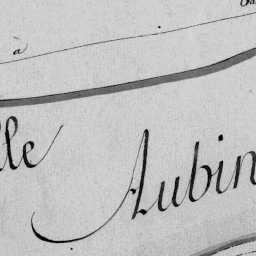 a
lle
Aubin